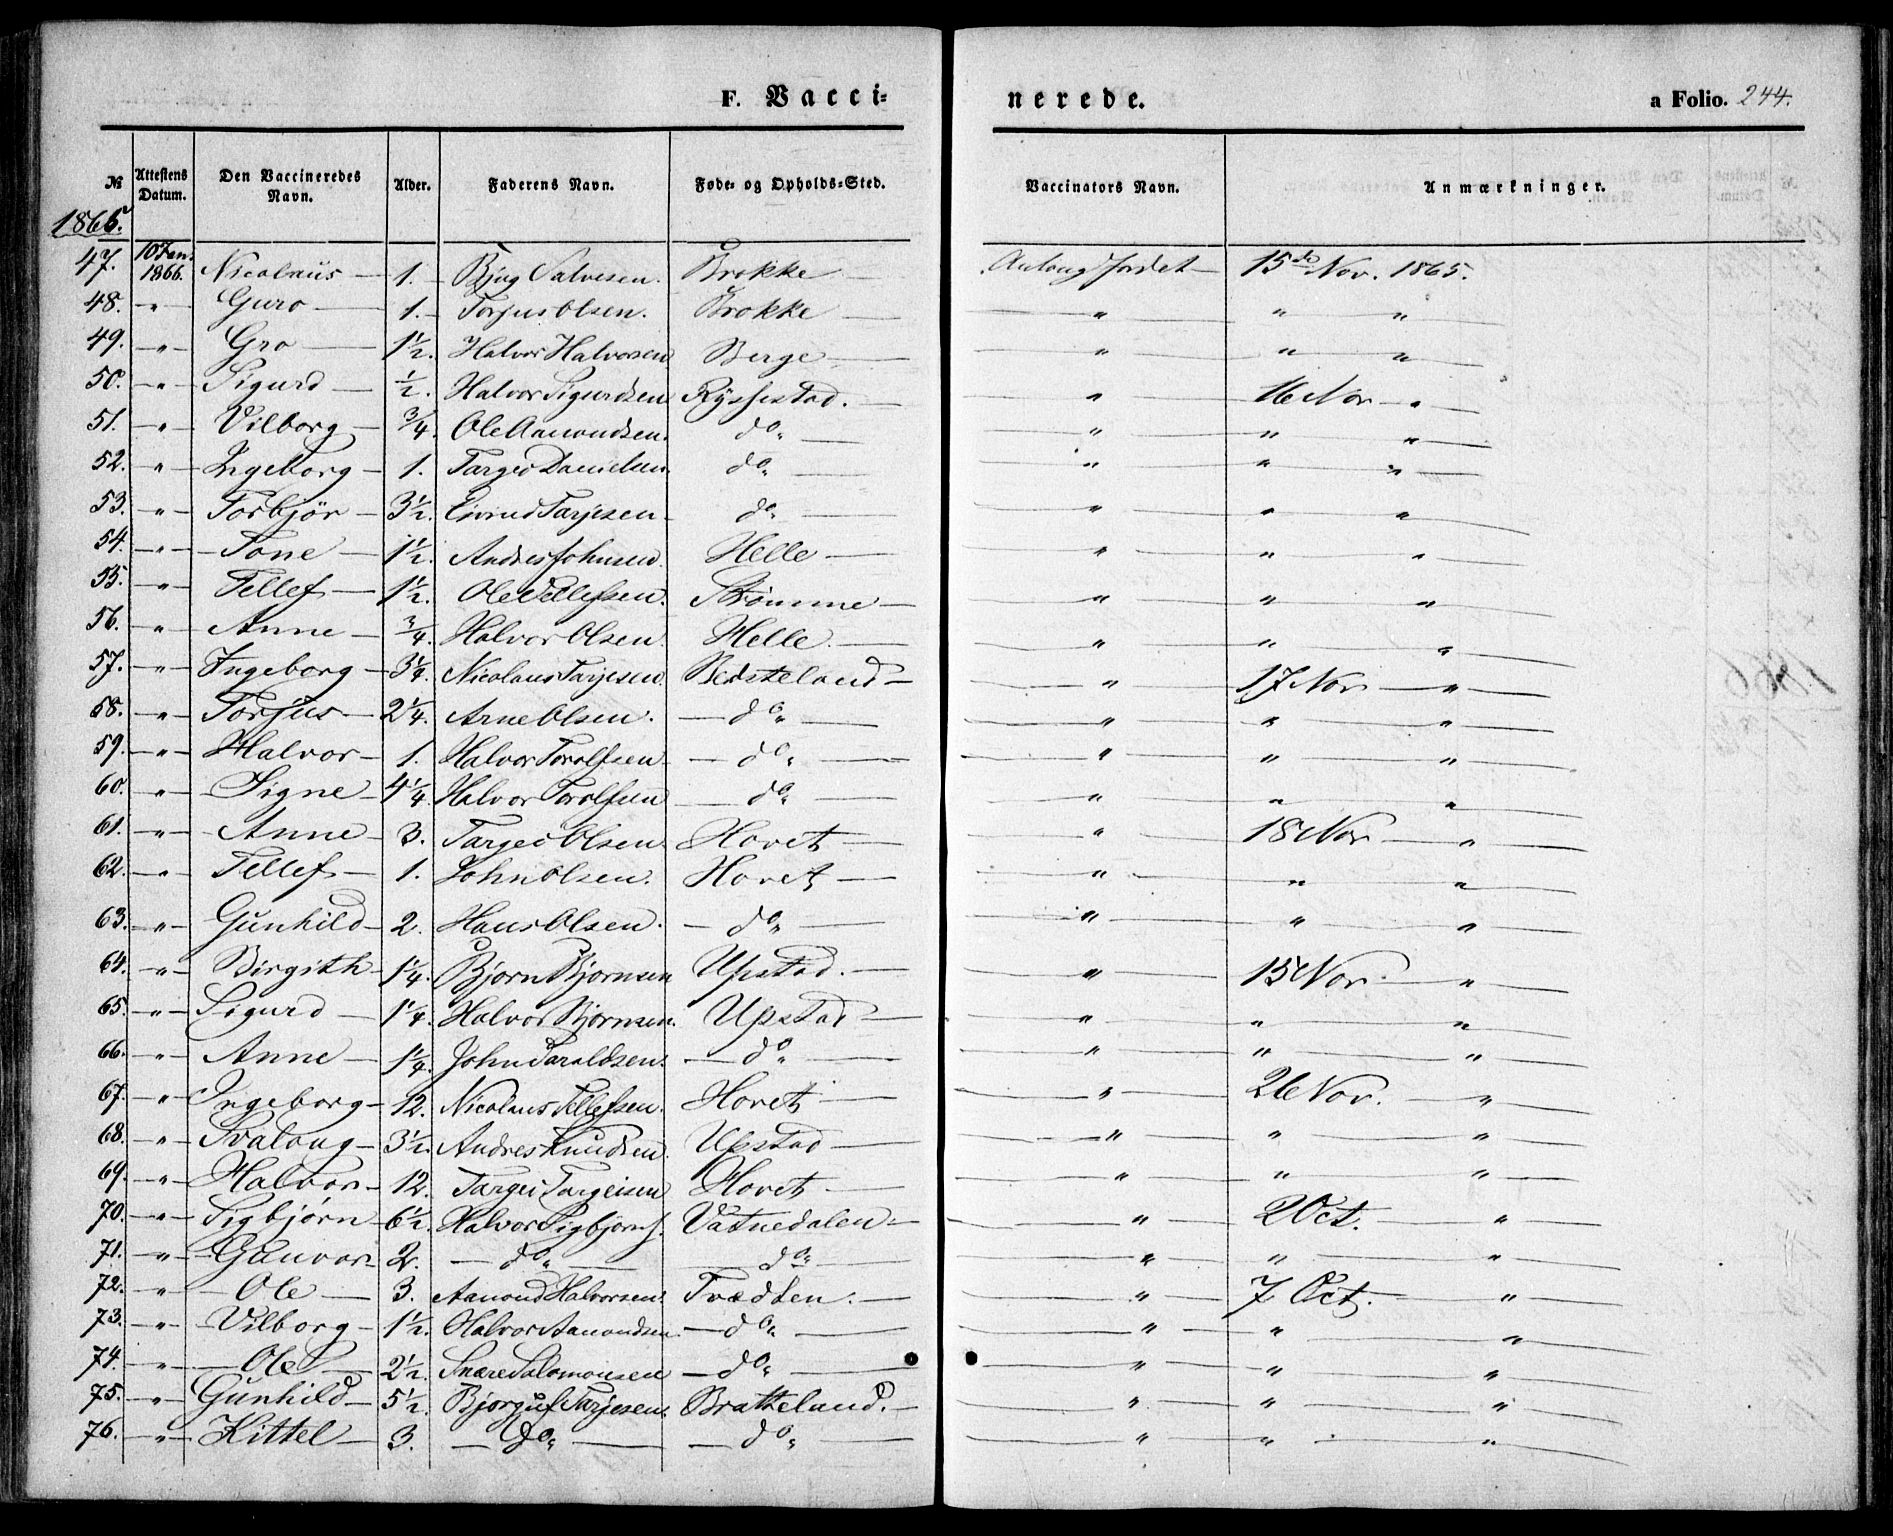 F. Vacci-
nerede.
a Folio. 244.
№ Attestens Datum. Den Vaccineredes Navn. Alder. Faderens Navn. Føde- og Opholds-Sted. Vaccinators Navn. Anmærkninger.
1865.
47. 10 Jan. 1866. Nicolaus 1. Bjug Salvesen. Brokke Aulong Jordet 15de Nov. 1865.
48. " Guro 1. Torjus Olsen. Brokke " " "
49. " Gro 1½. Halvor Halvorsen Berge " " "
50. " Sigurd ½. Halvor Sigurdsen Ryssestad. " 16 Nov "
51. " Vilborg ¾. Ole Aamondsen. do " " "
52. " Ingeborg 1. Targei Danielsen. do " " "
53. " Torbjør 3½. Eivind Tarjesen do " " "
54. " Tone 1½. Andres Johnsen. Helle " " "
55. " Tellef 1½. Ole Tellefsen. Strømme " " "
56. " Anne ¾. Halvor Olsen. Helle. " " "
57. " Ingeborg 3¼. Nicolaus Tarjesen. Besteland " 17 Nov "
58. " Torjus 2¼. Arne Olsen. do " " "
59. " Halvor 1. Halvor Torolfsen do " " "
60. " Signe 4¼. Halvor Torolfsen do " " "
61. " Anne 3. Targei Olsen. Hovet " 18 Nov "
62. " Tellef 1. John Olsen. Hovet " " "
63. " Gunhild 2. Hans Olsen. do " " "
64. " Birgith 1¼. Bjørn Bjørnsen Upstad. " 15 Nov. "
65. " Sigurd 1¼. Halvor Bjørnsen. Upstad " " "
66. " Anne 1¼. John Taraldsen. do " " "
67. " Ingeborg 12. Nicolaus Tellefsen. Hovet " 26 Nov. "
68. " Svalaug 3½. Andres Knudsen. Upstad " " "
69. " Halvor 12. Targei Targeisen Hovet " " "
70. " Sigbjørn 6½. Halvor Sigbjørns. Vatnedalen " 2 Oct. "
71. " Gunvor 2. do do " " "
72. " Ole 3. Aamond Halvorsen. Tvedten. " 7 Oct. "
73. " Vilborg 1½. Halvor Aamondsen. do " " "
74. " Ole 2½. Snare Salomonsen do " " "
75. " Gunhild 5½. Bjørguf Tarjesen. Bratteland. " " "
76. " Kittel 3. do do " " "